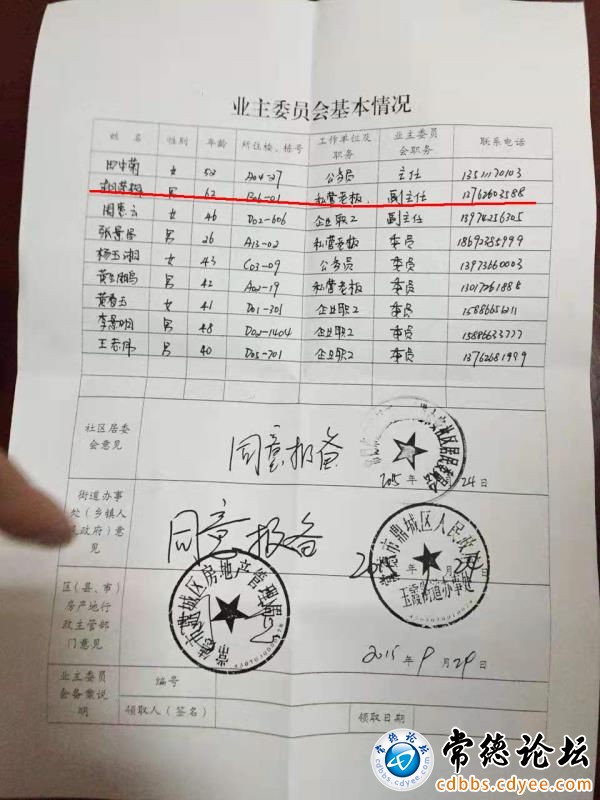 业主委员会基本情况
姓 名 性别 年龄 所住楼、栋号 工作单位及职务 业主委员会职务 联系电话
女 52 公务员 主任 13511170103
男 62 B06-01 私营老板 副主任 13762603588
周惠云 女 46 D02-606 企业职工 副主任 13974256305
男 26 A13-02 私营老板 委员
杨玉湘 女 43 C03-09 公务员 委员 13973660003
男 42 A02-19 私营老板 委员
黄春玉 女 41 D01-301 企业职工 委员
男 48 D02-1404 企业职工 委员
王志伟 男 40 D05-701 企业职工 委员 13762681999
社区居委
会意见
同意报备
2015 年 24 日
街道办事
处(乡镇人
民政府)意
见
同意报备
常德市鼎城区人民政府
玉霞街道办事处
区(县、市)
房产地行
政主管部
门意见
常德市鼎城区房地产管理局
2015 年 9 月 29 日
业主委员
会备案说
明
编号
领取人(签名)
领取日期
常德论坛
cdbbs.cdyee.com